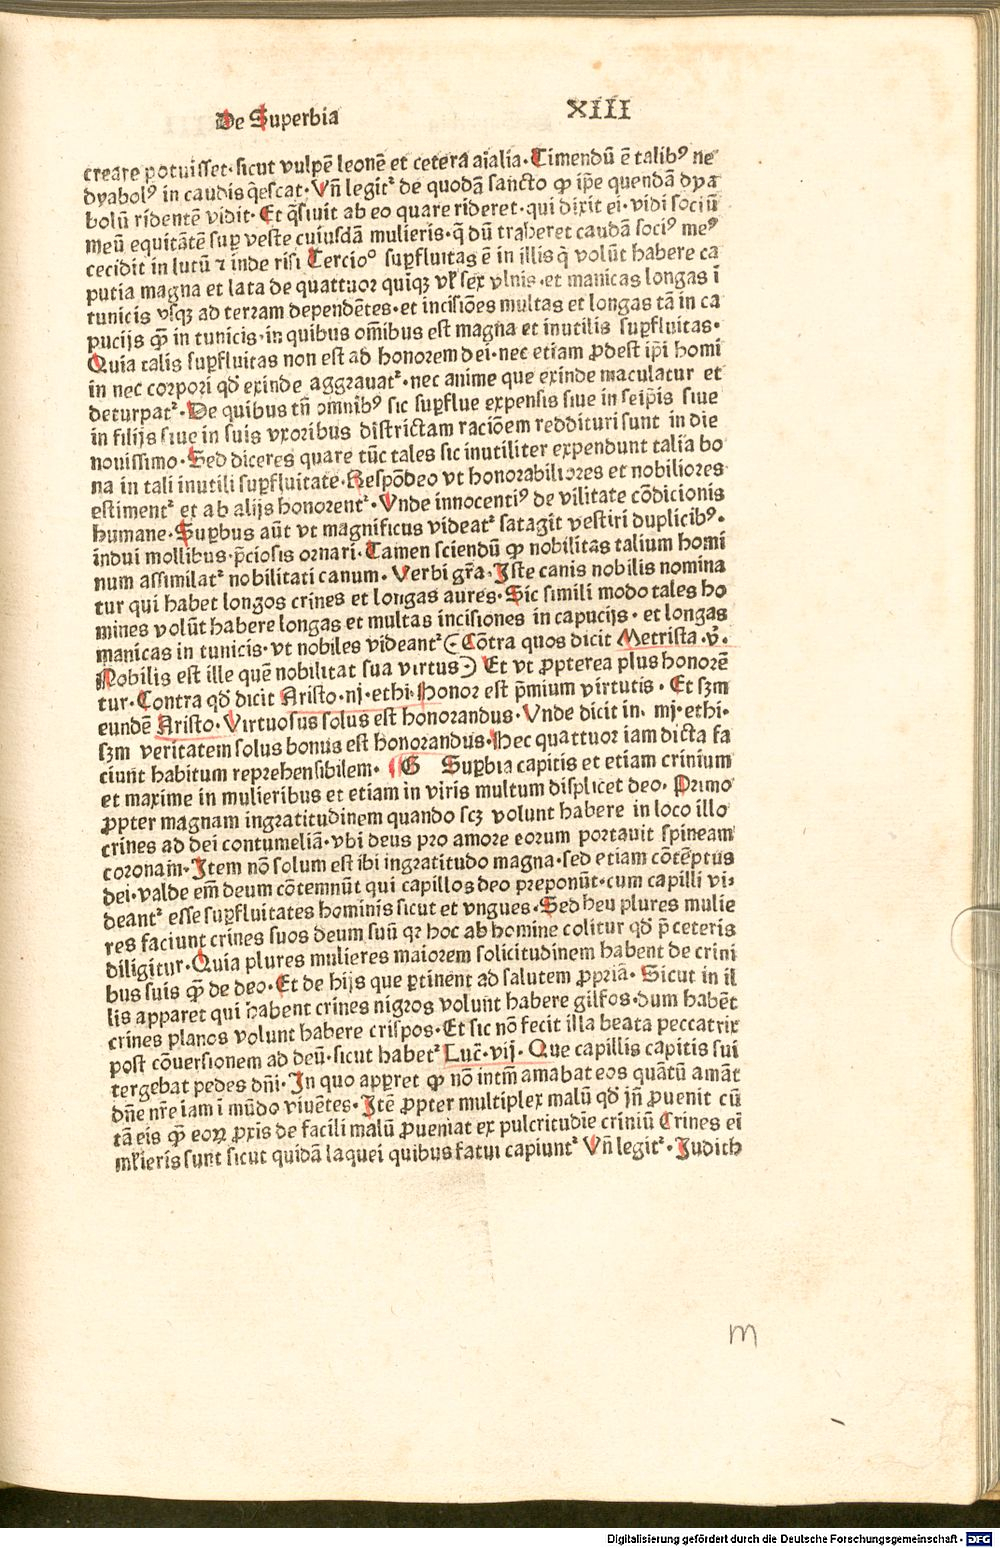 De Superbia
XIII
creare potuisset· sicut vulpē leonē et cetera aĩalia· Timendū ē talibꝰ ne
dyabolꝰ in caudis q̄escat· Vñ legitᷣ de quodā sancto ꝙ ip̄e quendā dya
bolū ridentē vidit· Et q̄siuit ab eo quare rideret· qui dixit ei· vidi sociū
meū equitātē suꝑ veste cuiusdā mulieris· q̄ dū traheret caudā sociꝰ meꝰ
cecidit in lutū ⁊ inde risi Tercio° suꝑfluitas ē in illis q̇ volūt habere ca
putia magna et lata de quattuor quiqꝫ vł sex vlnis· et manicas longas ī
tunicis vsqꝫ ad terram dependētes· et incisiōes multas et longas tā in ca
pucijs ꝙ̄ in tunicis· in quibus om̄ibus est magna et inutilis suꝑfluitas·
Quia talis suꝑfluitas non est ad honorem dei· nec etiam ꝓdest ip̄i homi
in nec corpori qđ exinde aggrauatᷣ· nec anime que exinde maculatur et
deturpatᷣ· De quibus tñ omnibꝰ sic suꝑflue expensis siue in seip̄is siue
in filijs siue in suis vxoribus districtam raciōem reddituri sunt in die
nouissimo· Sed diceres quare tūc tales sic inutiliter expendunt talia bo
na in tali inutili suꝑfluitate· Respōdeo vt honorabiliores et nobiliores
estimentᷣ et ab alijs honorentᷣ· Vnde innocentiꝰ de vilitate cōdicionis
humane· Suꝑbus aūt vt magnificus videatᷣ satagit vestiri duplicibꝰ·
indui mollibus· p̄ciosis ornari· Tamen sciendū ꝙ nobilitas talium homi
num assimilatᷣ nobilitati canum· Verbi gr̄a· Iste canis nobilis nomina
tur qui habet longos crines et longas aures· Sic simili modo tales ho
mines volūt habere longas et multas incisiones in capucijs· et longas
manicas in tunicis· vt nobiles videantᷣ (Cōtra quos dicit Metrista· v̄·
Nobilis est ille quē nobilitat sua virtus) Et vt ꝓpterea plus honorē
tur· Contra qđ dicit Aristo· iiij· ethi· Honor est p̄mium virtutis· Et sꝫm
eundē Aristo· Virtuosus solus est honorandus· Vnde dicit in· iiij· ethi·
sꝫm veritatem solus bonus est honorandus· Hec quattuor iam dicta fa
ciunt habitum reprehensibilem· ¶ G Suꝑbia capitis et etiam crinium
et maxime in mulieribus et etiam in viris multum displicet deo· Primo
ꝓpter magnam ingratitudinem quando scꝫ volunt habere in loco illo
crines ad dei contumeliā· vbi deus pro amore eorum portauit spineam
coronam· Item nō solum est ibi ingratitudo magna· sed etiam cōtēptus
dei· valde em̄ deum cōtemnūt qui capillos deo preponūt· cum capilli vi⸗
deantᷣ esse suꝑfluitates hominis sicut et vngues· Sed heu plures mulie
res faciunt crines suos deum suū qꝛ hoc ab homine colitur qđ p̄ ceteris
diligitur· Quia plures mulieres maiorem solicitudinem habent de crini
bus suis ꝙ̄ de deo· Et de hijs que ꝑtinent ad salutem ꝓpriā· Sicut in il
lis apparet qui habent crines nigros volunt habere gilfos· dum habēt
crines planos volunt habere crispos· Et sic nō fecit illa beata peccatrix
post cōuersionem ad deū· sicut habetᷣ Luc̄· vij· Que capillis capitis sui
tergebat pedes dñi· In quo apꝑret ꝙ nō intm̄ amabat eos quātū amāt
dñe nr̄e iam ī mūdo viuētes· Itē ꝓpter multiplex malū qđ īn̄ ꝓuenit cū
tā eis ꝙ̄ eoꝝ ꝓxis de facili malū ꝓueniat ex pulcritudīe criniū Crines eī
mlieris sunt sicut quidā laquei quibus fatui capiuntᷣ Vñ legitᷣ· Iudith
m
Digitalisierung gefördert durch die Deutsche Forschungsgemeinschaft - DFG